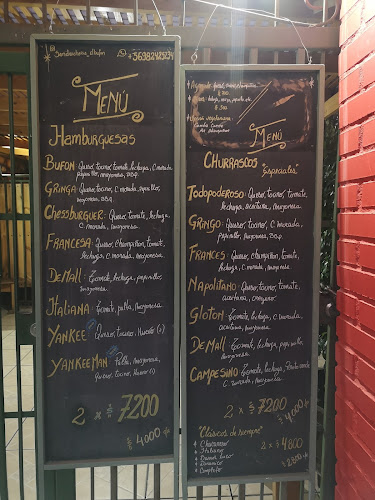 MENÚ
HAMBURGUESAS
BUFON: Queso, tocino, tomate,
lechuga, C. morada,
pepinillo, mayonesa, BBQ.
GRINGA: Queso, tocino,
C. morada, pepinillo,
mayonesa, BBQ.
CHESSBURGUER: Queso, tomate, lechuga,
C. morada, mayonesa.
FRANCESA: Queso, champiñon, tomate,
lechuga, C. morada, mayonesa.
DEMALL: Tomate, lechuga, pepinillo,
mayonesa.
ITALIANA: Tomate, palta, mayonesa.
YANKEE: Queso, tocino, Huevo (1)
YANKEEMAN: Palta, mayonesa,
Queso, tocino, Huevo (1)
2 x $ 7200
$ 4000
MENÚ
CHURRASCOS
Especiales
TODOPODEROSO: Queso, tocino, tomate,
lechuga, aceituna, mayonesa.
GRINGO: Queso, tocino, C. morada,
pepinillo, mayonesa, BBQ.
FRANCES: Queso, champiñon, tomate,
lechuga, C. morada, mayonesa
NAPOLITANO: Queso, tocino, tomate,
aceituna, oregano.
GLOTON: Tomate, lechuga, C. morada,
aceituna, mayonesa.
DEMALL: Tomate, lechuga, pepinillo,
mayonesa.
CAMPESINO: Tomate, lechuga,
C. morada, mayonesa.
2 x $ 7200
$ 4000
"Clásicos de siempre"
Chacarero
Italiano
Barros Luco
Dinamico
Completo
2 x $ 4800